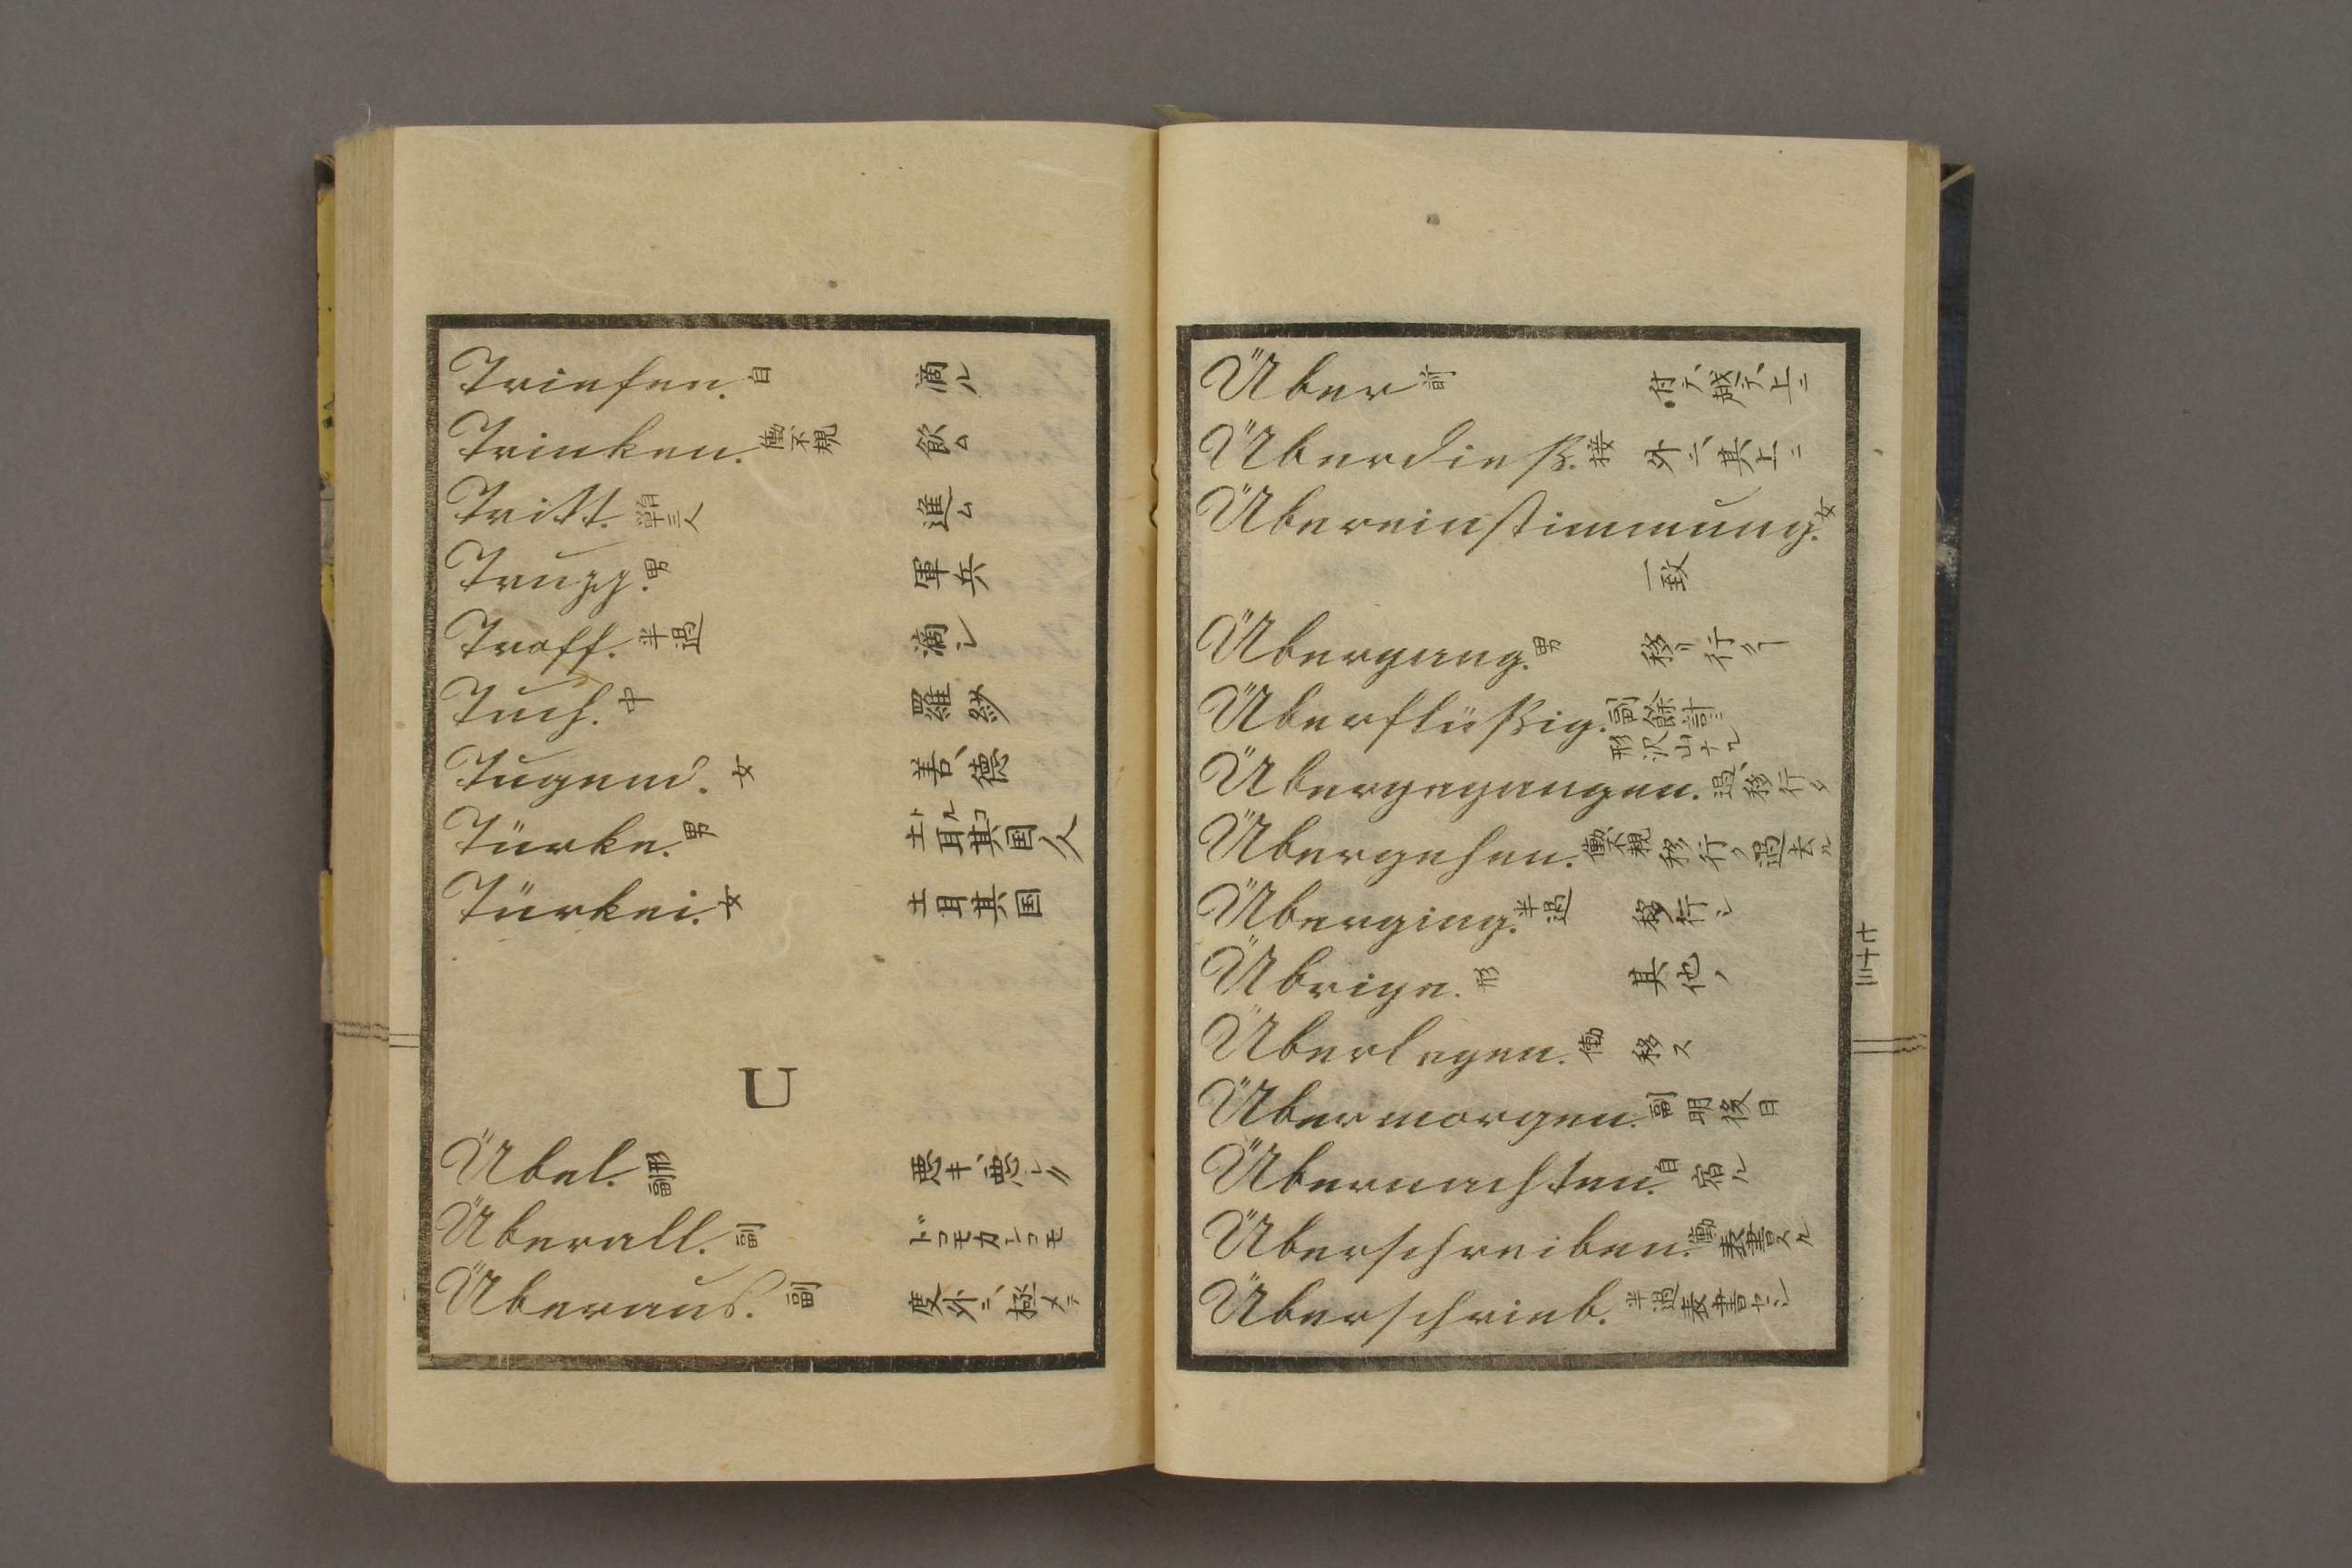 Triefen. 自 滴ル
Trinken. 働不規 飲ム
Tritt. 自単三人 進ム
Trupp. 男 軍兵
Troff. 半過 滴レ
Tuch. 中 羅紗
Tugend. 女 善、德
Türke. 男 土耳其国人
Türkei. 女 土耳其国
U
Übel. 形副 悪キ、悪シク
Überall. 副 ドコモカシコモ
Überaus. 副 度外ニ、極メテ
Über 前 付テ、越テ、上ニ
Überdieß. 接 外ニ、其上ニ
Übereinstimmung. 女
一致
Übergang. 男 移リ行クヿ
Überflüßig. 副 餘計ニ
形 沢山ナル
Übergegangen. 過、移行タ
Übergehen. 働不規 移行ク過去ル
Überging. 半過 移行シ
Übrige. 形 其他ノ
Überlegen. 働 移ス
Übermorgen. 副 明後日
Übernachten. 自 宿ル
Überschreiben. 働 表書スル
Überschrieb. 半過 表書セシ